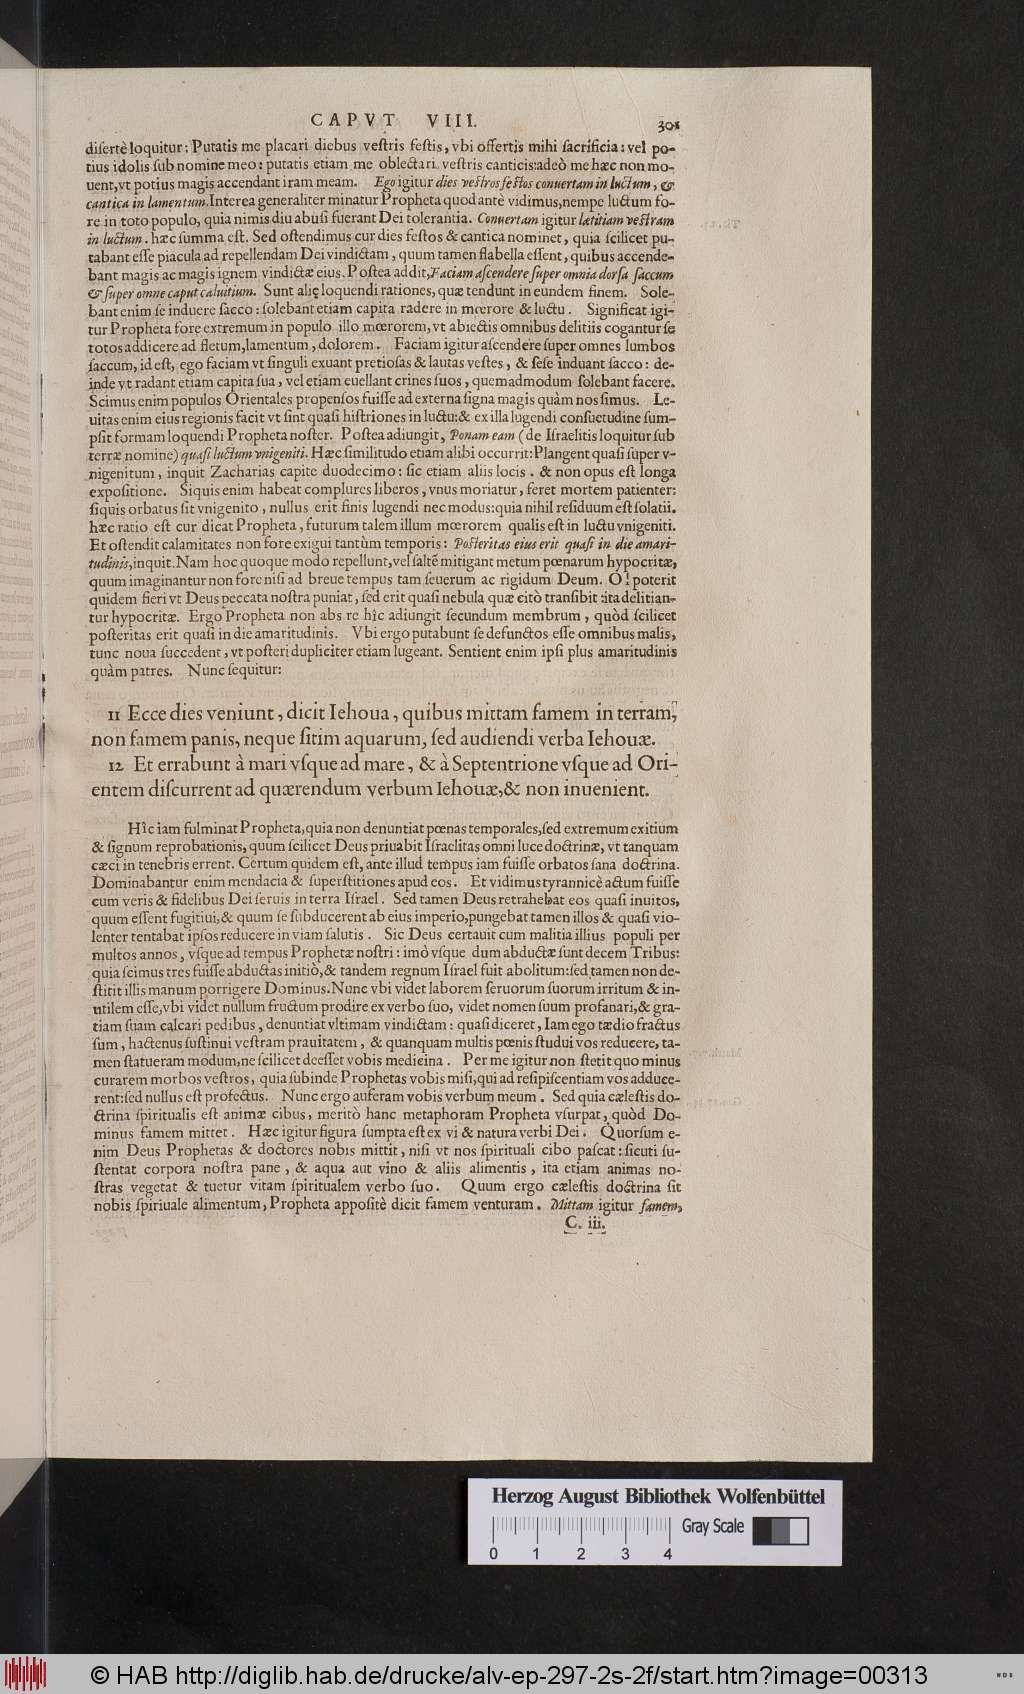 CAPVT VIII. 301
diſertè loquitur: Putatis me placari diebus veſtris feſtis, vbi offertis mihi ſacrificia: vel po-
tius idolis ſub nomine meo: putatis etiam me oblectari veſtris canticis: adeò me hæc non mo-
uent, vt potius magis accendant iram meam. Ego igitur dies veſtros feſtos conuertam in luctum, &
cantica in lamentum. Interea generaliter minatur Propheta quod antè vidimus, nempe luctum fo-
re in toto populo, quia nimis diu abuſi fuerant Dei tolerantia. Conuertam igitur lætitiam veſtram
in luctum. hæc ſumma eſt. Sed oſtendimus cur dies feſtos & cantica nominet, quia ſcilicet pu-
tabant eſſe piacula ad repellendam Dei vindictam, quum tamen flabella eſſent, quibus accende-
bant magis ac magis ignem vindictæ eius. Poſtea addit, Faciam aſcendere ſuper omnia dorſa ſaccum
& ſuper omne caput caluitium. Sunt alię loquendi rationes, quæ tendunt in eundem finem. Sole-
bant enim ſe induere ſacco: ſolebant etiam capita radere in mœrore & luctu. Significat igi-
tur Propheta fore extremum in populo illo mœrorem, vt abiectis omnibus delitiis cogantur ſe
totos addicere ad fletum, lamentum, dolorem. Faciam igitur aſcendere ſuper omnes lumbos
ſaccum, id eſt, ego faciam vt ſinguli exuant pretioſas & lautas veſtes, & ſeſe induant ſacco: de-
inde vt radant etiam capita ſua, vel etiam euellant crines ſuos, quemadmodum ſolebant facere.
Scimus enim populos Orientales propenſos fuiſſe ad externa ſigna magis quàm nos ſimus. Le-
uitas enim eius regionis facit vt ſint quaſi hiſtriones in luctu: & ex illa lugendi conſuetudine ſum-
pſit formam loquendi Propheta noſter. Poſtea adiungit, Ponam eam (de Iſraelitis loquitur ſub
terræ nomine) quaſi luctum vnigeniti. Hæc ſimilitudo etiam alibi occurrit: Plangent quaſi ſuper v-
nigenitum, inquit Zacharias capite duodecimo: ſic etiam aliis locis. & non opus eſt longa
expoſitione. Siquis enim habeat complures liberos, vnus moriatur, feret mortem patienter:
ſiquis orbatus ſit vnigenito, nullus erit finis lugendi nec modus: quia nihil reſiduum eſt ſolatii.
hæc ratio eſt cur dicat Propheta, futurum talem illum mœrorem qualis eſt in luctu vnigeniti.
Et oſtendit calamitates non fore exigui tantùm temporis: Poſteritas eius erit quaſi in die amari-
tudinis, inquit. Nam hoc quoque modo repellunt, vel ſaltẽ mitigant metum pœnarum hypocritæ,
quum imaginantur non fore niſi ad breue tempus tam ſeuerum ac rigidum Deum. O! poterit
quidem fieri vt Deus peccata noſtra puniat, ſed erit quaſi nebula quæ citò tranſibit: ita delitian-
tur hypocritæ. Ergo Propheta non abs re hîc adiungit ſecundum membrum, quòd ſcilicet
poſteritas erit quaſi in die amaritudinis. Vbi ergo putabunt ſe defunctos eſſe omnibus malis,
tunc noua ſuccedent, vt poſteri dupliciter etiam lugeant. Sentient enim ipſi plus amaritudinis
quàm patres. Nunc ſequitur:
11 Ecce dies veniunt, dicit Iehoua, quibus mittam famem in terram,
non famem panis, neque ſitim aquarum, ſed audiendi verba Iehouæ.
12 Et errabunt à mari vſque ad mare, & à Septentrione vſque ad Ori-
entem diſcurrent ad quærendum verbum Iehouæ, & non inuenient.
Hîc iam fulminat Propheta, quia non denuntiat pœnas temporales, ſed extremum exitium
& ſignum reprobationis, quum ſcilicet Deus priuabit Iſraelitas omni luce doctrinæ, vt tanquam
cæci in tenebris errent. Certum quidem eſt, ante illud tempus iam fuiſſe orbatos ſana doctrina.
Dominabantur enim mendacia & ſuperſtitiones apud eos. Et vidimus tyrannicè actum fuiſſe
cum veris & fidelibus Dei ſeruis in terra Iſrael. Sed tamen Deus retrahebat eos quaſi inuitos,
quum eſſent fugitiui, & quum ſe ſubducerent ab eius imperio, pungebat tamen illos & quaſi vio-
lenter tentabat ipſos reducere in viam ſalutis. Sic Deus certauit cum malitia illius populi per
multos annos, vſque ad tempus Prophetæ noſtri: imò vſque dum abductæ ſunt decem Tribus:
quia ſcimus tres fuiſſe abductas initiò, & tandem regnum Iſrael fuit abolitum: ſed tamen non de-
ſtitit illis manum porrigere Dominus. Nunc vbi videt laborem ſeruorum ſuorum irritum & in-
utilem eſſe, vbi videt nullum fructum prodire ex verbo ſuo, videt nomen ſuum profanari, & gra-
tiam ſuam calcari pedibus, denuntiat vltimam vindictam: quaſi diceret, Iam ego tædio fractus
ſum, hactenus ſuſtinui veſtram prauitatem, & quanquam multis pœnis ſtudui vos reducere, ta-
men ſtatueram modum, ne ſcilicet deeſſet vobis medicina. Per me igitur non ſtetit quo minus
curarem morbos veſtros, quia ſubinde Prophetas vobis miſi, qui ad reſipiſcentiam vos adduce-
rent: ſed nullus eſt profectus. Nunc ergo auferam vobis verbum meum. Sed quia cæleſtis do-
ctrina ſpiritualis eſt animæ cibus, meritò hanc metaphoram Propheta vſurpat, quòd Do-
minus famem mittet. Hæc igitur figura ſumpta eſt ex vi & natura verbi Dei. Quorſum e-
nim Deus Prophetas & doctores nobis mittit, niſi vt nos ſpirituali cibo paſcat: ſicuti ſu-
ſtentat corpora noſtra pane, & aqua aut vino & aliis alimentis, ita etiam animas no-
ſtras vegetat & tuetur vitam ſpiritualem verbo ſuo. Quum ergo cæleſtis doctrina ſit
nobis ſpiriuale alimentum, Propheta appoſitè dicit famem venturam. Mittam igitur famem,
C. iii.
Herzog August Bibliothek Wolfenbüttel
Gray Scale
0 1 2 3 4
© HAB http://diglib.hab.de/drucke/alv-ep-297-2s-2f/start.htm?image=00313